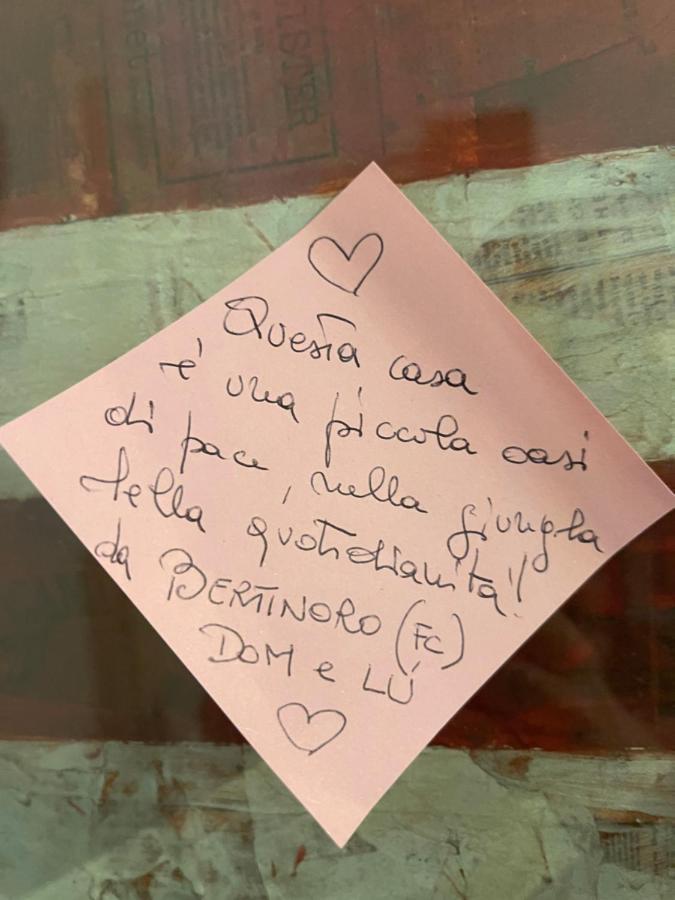 Questa casa
è una piccola oasi
di pace, nella giungla
della quotidianità!
da BERTINORO (FC)
DOM e LÙ